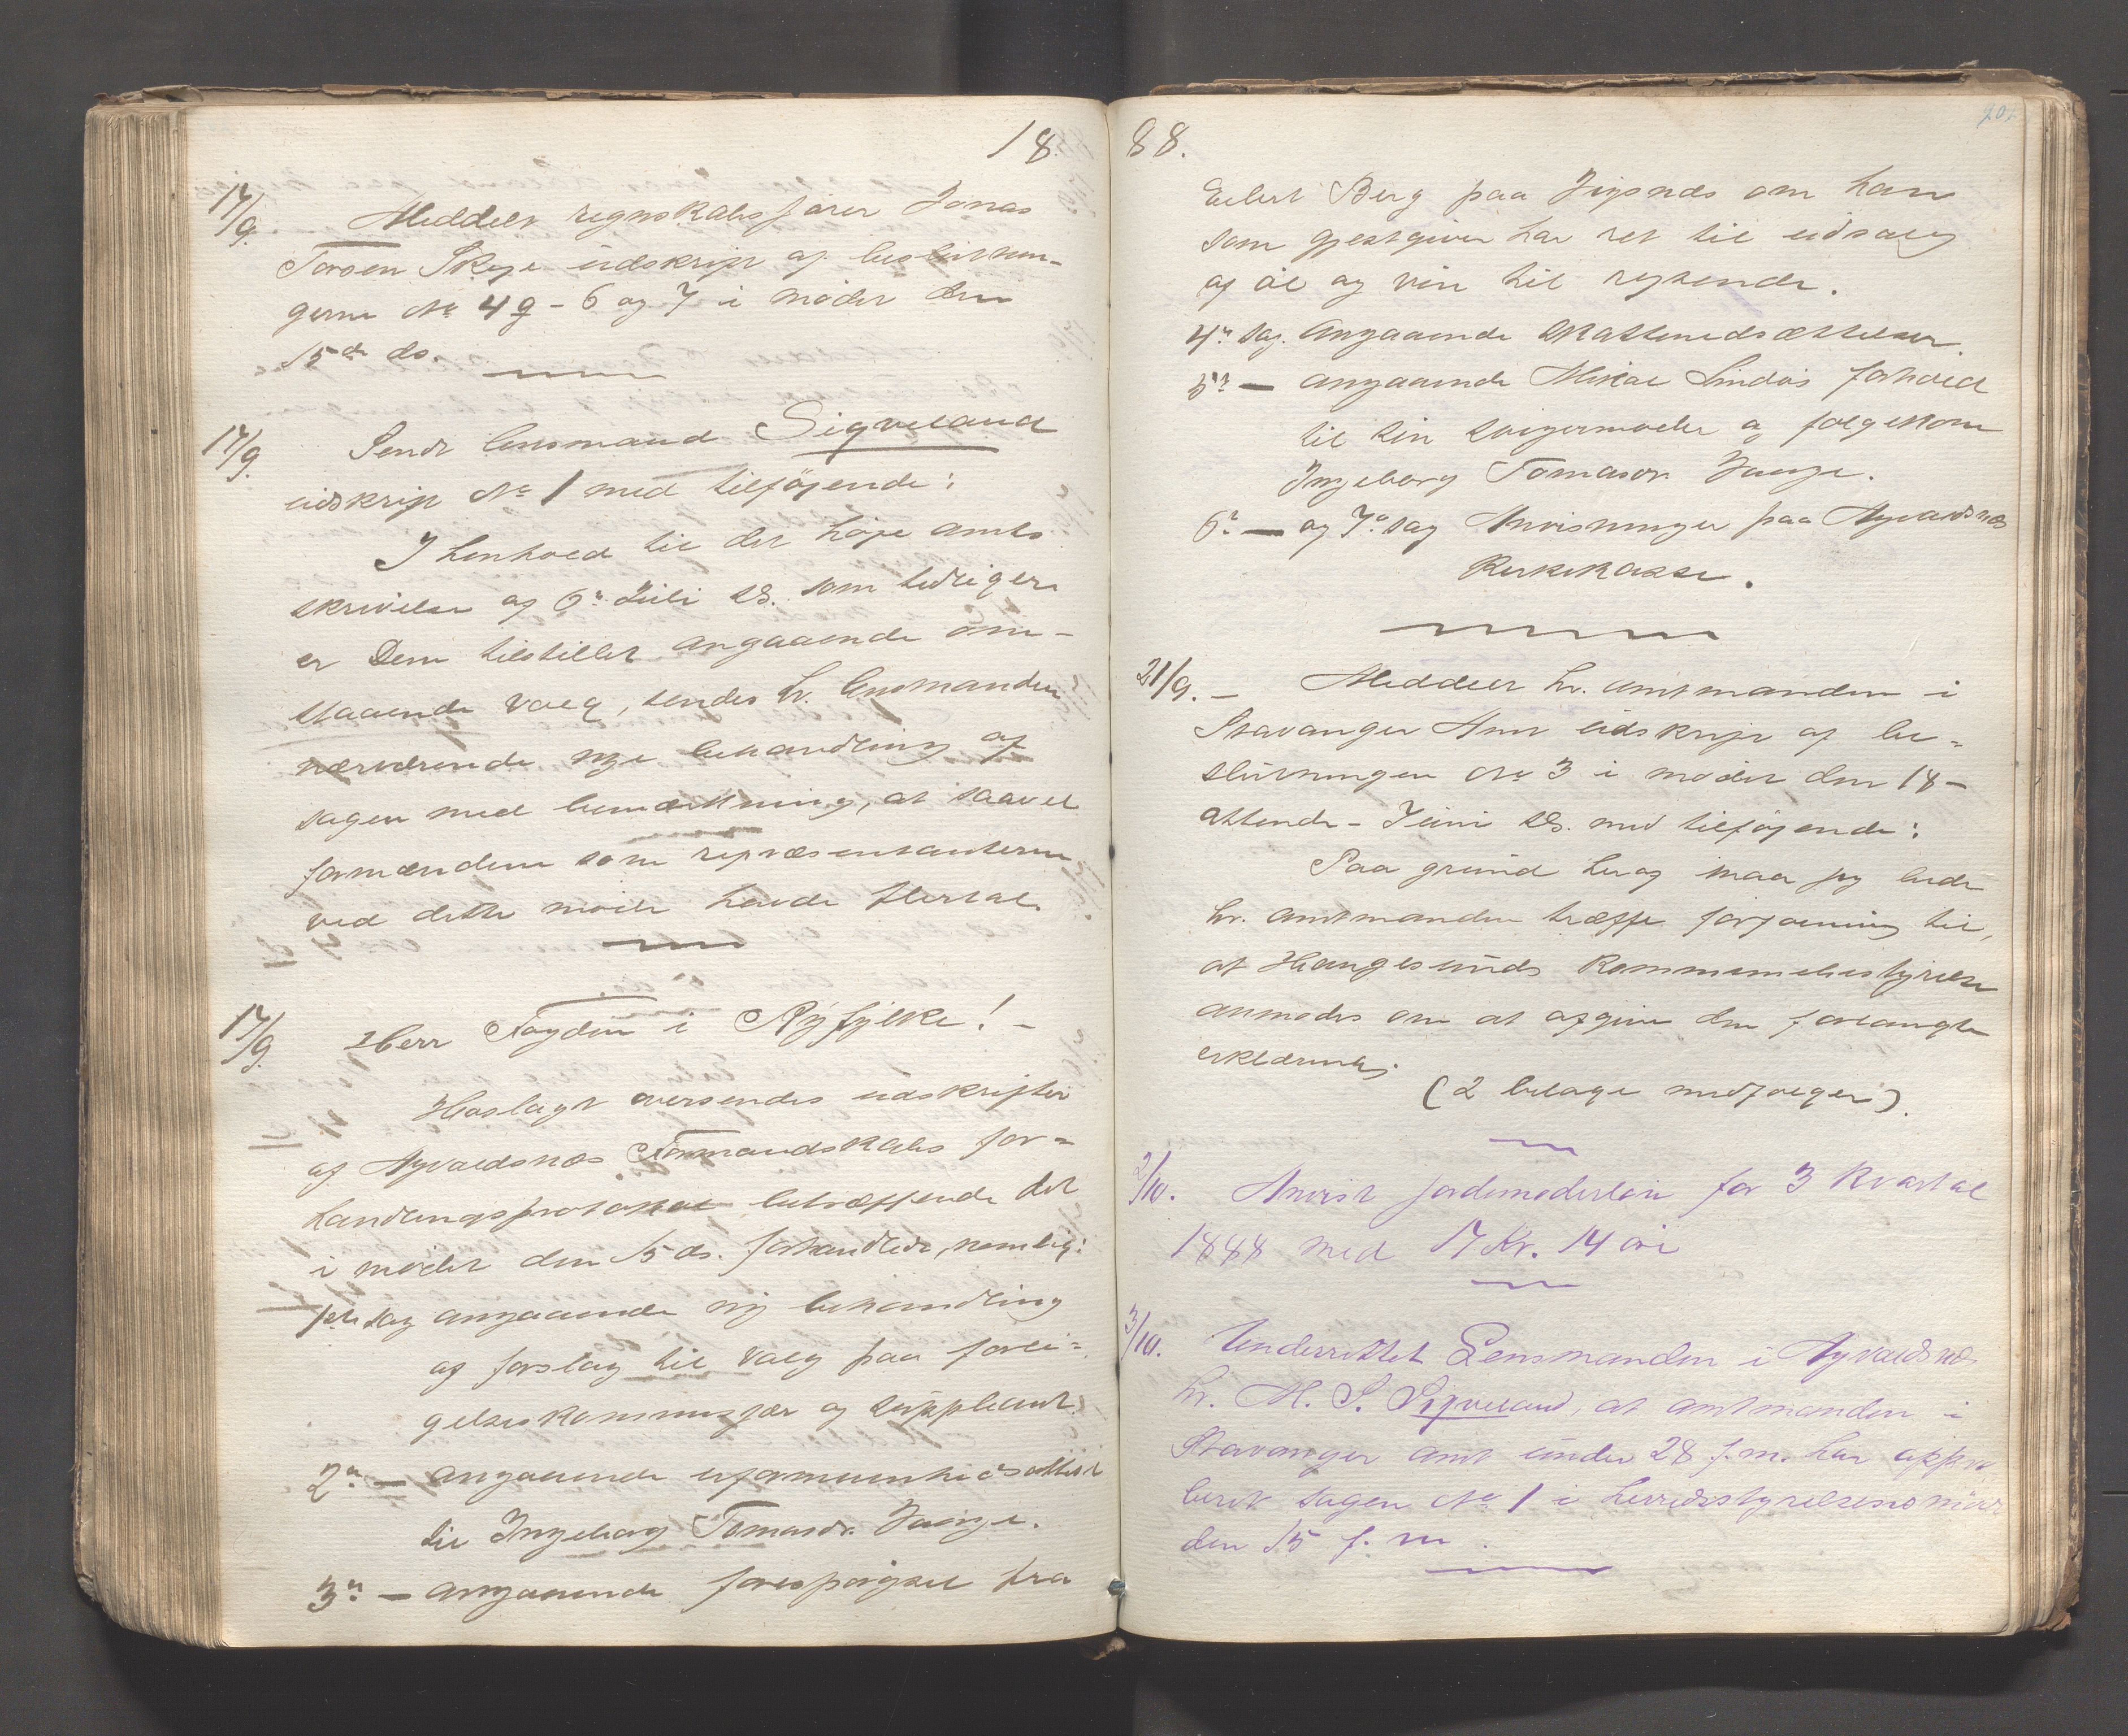 18
17/9. Meddelt regnskabsfører Jonas
Torsen Skeje udskrift af beslutnin-
gerne No 4 g - 6 og 7 i mødet den
15de ds.
17/9. Sendt lensmand Sigveland
udskrift No 1 med tilføjende:
I henhold til det høje amts
skrivelse af 6te Juli ds. som tidligere
er Dem tilstillet angaaende om-
staaende valg, sendes hr. lensmanden
nærværende nye behandling af
sagen med bemærkning, at saavel
formændene som repræsentanterne
ved dette møde havde flertal.
17/9. Herr Fogden i Ryfylke! -
Hoslagt oversendes udskrifter
af Agvaldsnæs Formandskabs for-
handlingsprotokol betræffende det
i mødet den 15 ds. forhandlede, nemlig:
1ste sag angaaende ny behandling
af forslag til valg paa forli-
gelseskommissær og suppleant.
2n — angaaende uformuenhedsattest
til Ingeborg Tomasdr.
3n — angaaende forespørgsel fra
88.
Eilert Berg paa om han
som gjestgiver har ret til udsalg
af øl og vin til rejsende.
4n sag. Angaaende skattenedsættelser.
5n — angaaende Mikal Lindøs forhold
til sin svigermoder og følgekone
Ingeborg Tomasdr.
6n — og 7n sag Anvisninger paa Agvaldsnæs
Kirkekasse.
21/9. - Meddelt hr. amtmanden i
Stavanger Amt udskrift af be-
slutningen No 3 i mødet den 18-
attende - Juni ds. med tilføjende:
Paa grund herag maa jeg bede
hr. amtmanden træffe forføining til,
at Haugesunds Kommunebestyrelse
anmodes om at afgive den forlangte
erklæring.
(2 bilage medfølger).
2/10. Anvist jordemoderløn for 3 kvartal
1888 med 17 Kr. 14 øre
3/10. Underrettet Lensmanden i Agvaldsnæs
hr. M. S. Sigveland, at amtmanden i
Stavanger amt under 28 f.m. har appro
beret sagen No 1 i herredsstyrelsens møde
den 15 f. m.